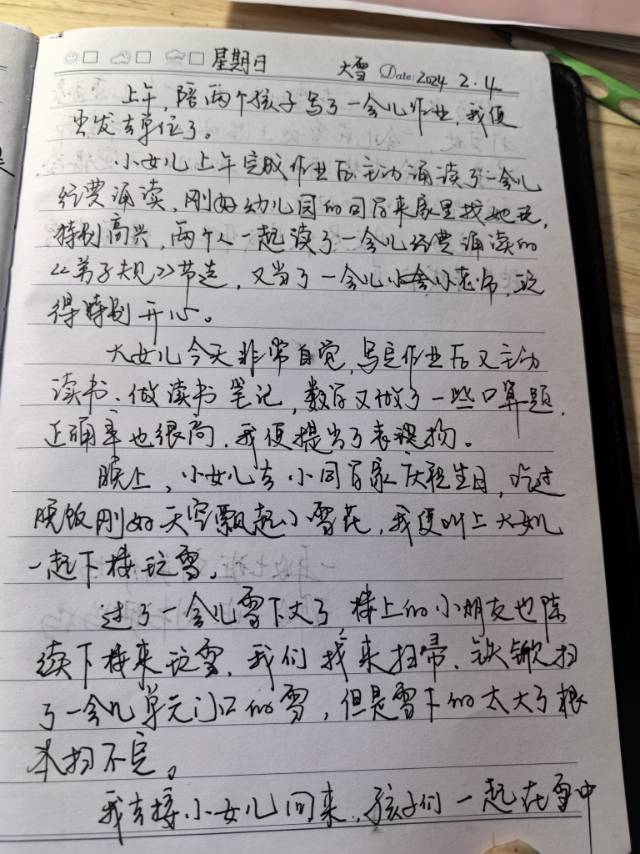 星期日 大雪 Date: 2024 2.4
上午,陪两个孩子写了一会儿作业,我便
出发去单位了。
小女儿上午完成作业后主动诵读了一会儿
经典诵读,刚好幼儿园的同学来家里找她玩,
特别高兴,两个人一起读了一会儿经典诵读的
《弟子规》节选,又当了一会儿小老师,玩
得特别开心。
大女儿今天非常自觉,写完作业后又主动
读书、做读书笔记,数学又做了一些口算题,
正确率也很高,我便提出了表扬。
晚上,小女儿去小同学家庆祝生日,吃过
晚饭刚好天空飘起小雪花,我便叫上大女儿
一起下楼玩雪。
过了一会儿雪下大了,楼上的小朋友也陆
续下楼来玩雪,我们找来扫帚、铁锨扫
了一会儿单元门口的雪,但是雪下的太大了根
本扫不完。
我去接小女儿回来,孩子们一起在雪中